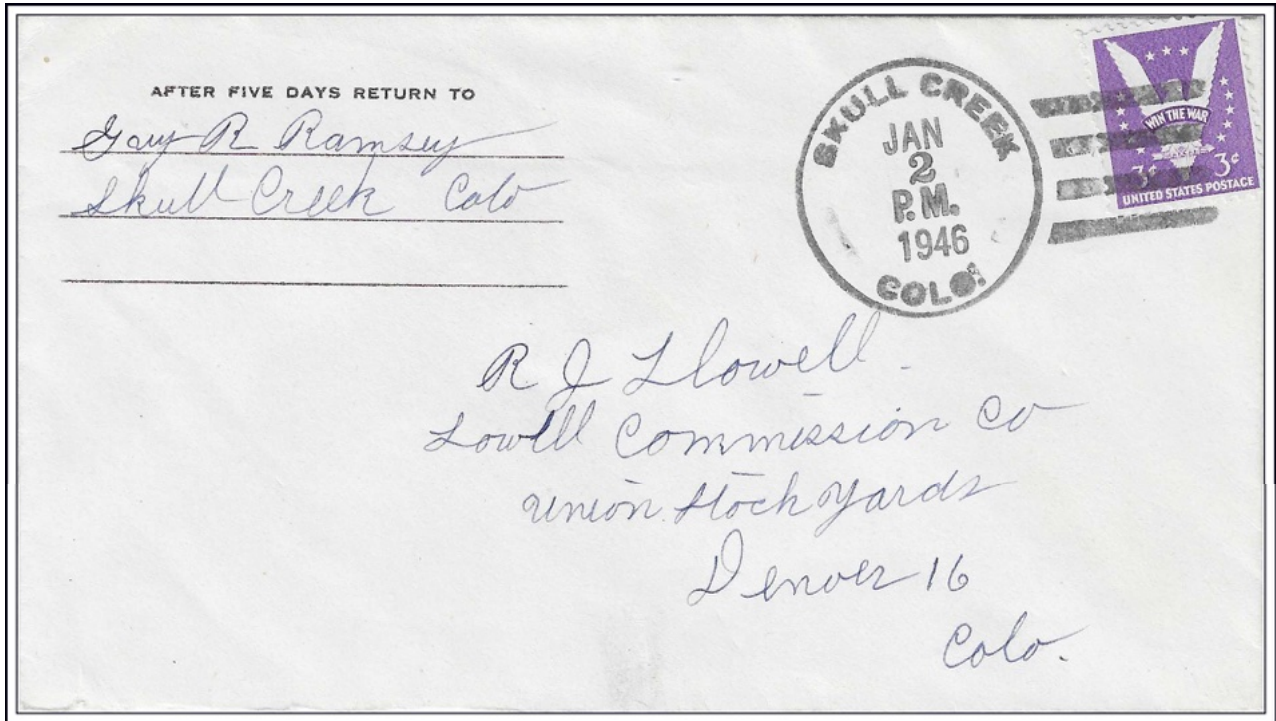 AFTER FIVE DAYS RETURN TO
Gary R Ramsey
Skull Creek Colo
SKULL CREEK
JAN
2
P.M.
1946
COLO.
WIN THE WAR
3¢ 3¢
UNITED STATES POSTAGE
R J Llowell
Lowell Commission Co
Union Stock Yards
Denver 16
Colo.